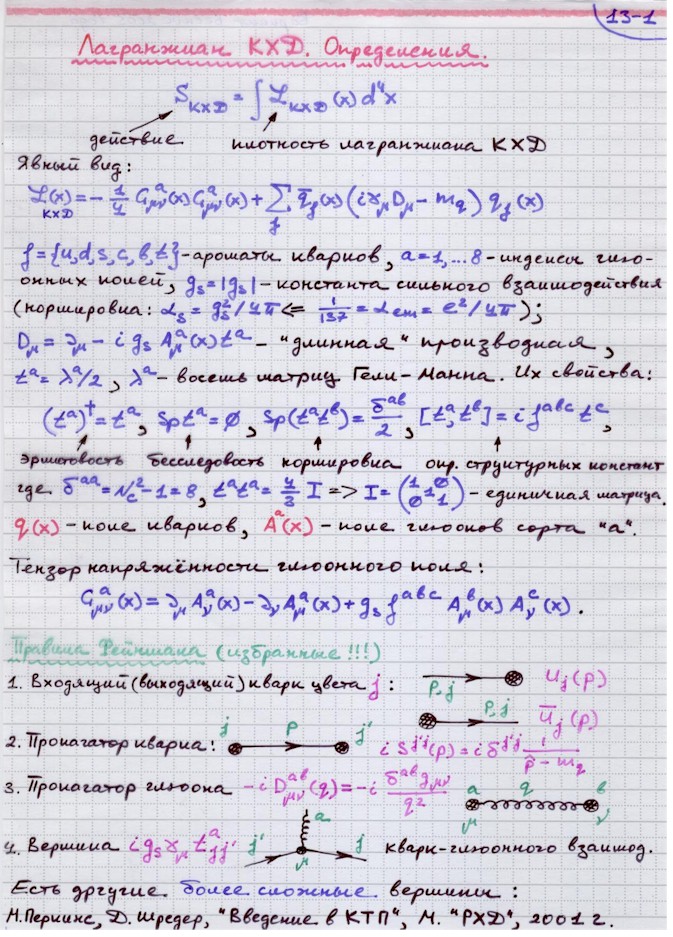 13-1
Лагранжиан КХД. Определения.
S_КХД = ∫ ℒ_КХД (x) d⁴x
действие плотность лагранжиана КХД
Явный вид:
ℒ_КХД(x) = - 1/4 G^a_μν(x) G^a_μν(x) + Σ_f q̄_f(x) (iγ_μ D_μ - m_q) q_f(x)
f = {u,d,s,c,b,t} - ароматы кварков, a = 1,...8 - индексы глюо-
онных полей, g_s = |g_s| - константа сильного взаимодействия
(нормировка: α_s = g_s²/4π ⇐ 1/137 = α_em = e²/4π);
D_μ = ∂_μ - i g_s A^a_μ(x) t^a - "длинная" производная,
t^a = λ^a/2, λ^a - восемь матриц Гелл-Манна. Их свойства:
(t^a)† = t^a, Sp t^a = 0, Sp(t^a t^b) = δ^ab/2, [t^a, t^b] = i f^abc t^c,
эрмитовость бесследовость нормировка опр. структурных констант
где δ^aa = N_c² - 1 = 8, t^a t^a = 4/3 I => I = (1 0 0 1 0 1) - единичная матрица.
q(x) - поле кварков, A^a(x) - поле глюонов сорта "a".
Тензор напряжённости глюонного поля:
G^a_μν(x) = ∂_μ A^a_ν(x) - ∂_ν A^a_μ(x) + g_s f^abc A^b_μ(x) A^c_ν(x).
Правила Фейнмана (избранные!!!)
1. Входящий (выходящий) кварк цвета j: p,j u_j(p)
p,j ū_j(p)
2. Пропагатор кварка: j p j' i S^j'j(p) = i δ^j'j 1/(p̂ - m_q)
3. Пропагатор глюона -i D^ab_μν(q) = -i δ^ab g_μν/q² a q b μ ν
4. Вершина i g_s γ_μ t^a_jj' j' a μ j кварк-глюонного взаимод.
Есть другие более сложные вершины:
М. Перкинс, Д. Шредер, "Введение в КТП", М. "РХД", 2001 г.